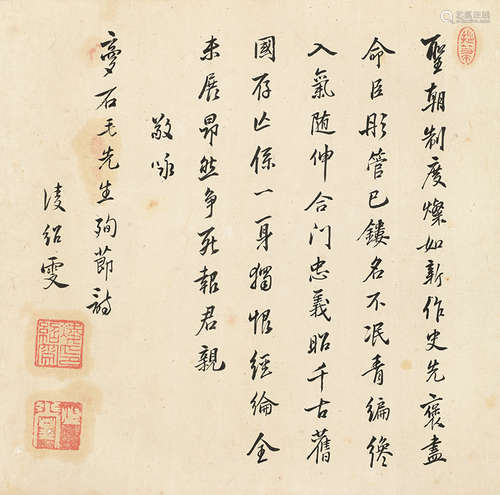 聖朝制度燦如新作史先褒盡
命臣彤管已鏤名不泯青編纔
入氣随伸合门忠義昭千古舊
國存亡係一身獨恨經綸全
未展昂然争死報君親
敬咏
夢石毛先生殉節詩
淩紹雯